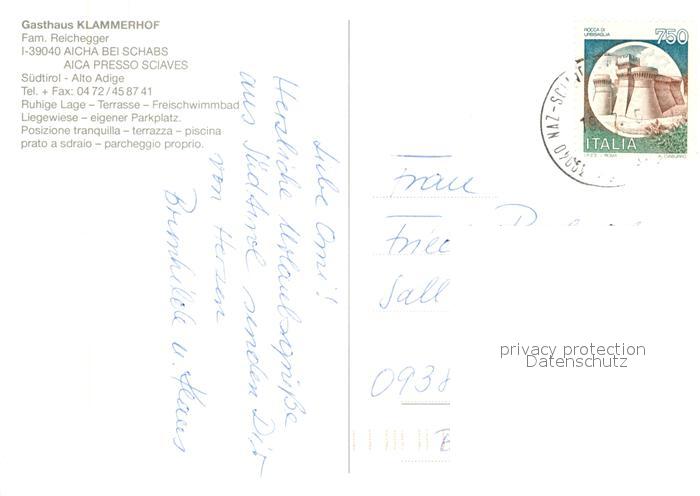 Gasthaus KLAMMERHOF
Fam. Reichegger
I-39040 AICHA BEI SCHABS
AICA PRESSO SCIAVES
Südtirol - Alto Adige
Tel. + Fax: 04 72 / 45 87 41
Ruhige Lage – Terrasse – Freischwimmbad
Liegewiese – eigener Parkplatz.
Posizione tranquilla – terrazza – piscina
prato a sdraio – parcheggio proprio.
Liebe Omi!
Herzliche Urlaubsgrüße
aus Südtirol senden Dir
von Herzen
Brunhilde u. Klaus
ROCCA DI
URBISAGLIA
750
ITALIA
I.P.Z.S. - ROMA
39040 NAZ-SCI
Frau
Frie
Sall
privacy protection
Datenschutz
0938